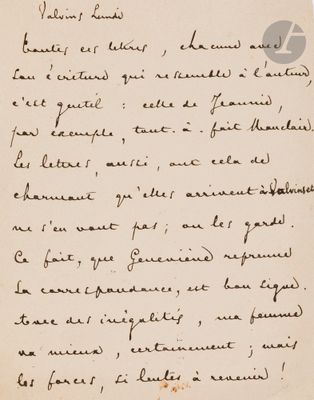 Valvins Lundi
Toutes ces lettres, chacune avec
son écriture qui ressemble à l'auteur,
c'est gentil : celle de Jeannie,
par exemple, tout-à-fait Mauclair.
Les lettres, aussi, ont cela de
charmant qu'elles arrivent à Valvins et
ne s'en vont pas ; on les garde.
Ce fait, que Geneviève reprenne
la correspondance, est bon signe.
Avec des inégalités, ma femme
va mieux, certainement ; mais
les forces, si lentes à revenir !